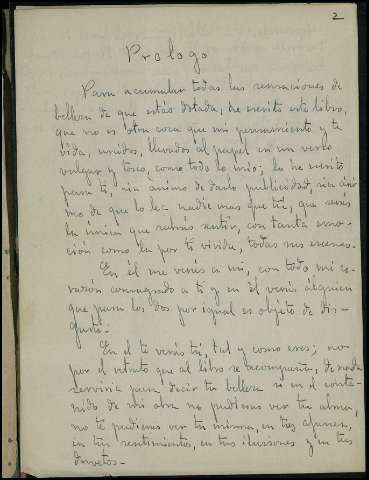 2
Prologo
Para acumular todas las sensaciones de
belleza de que estás dotada, he escrito este libro,
que no es otra cosa que mi pensamiento y tu
vida, unidos, llevados al papel en un verbo
vulgar y tosco, como todo lo mio; lo he escrito
para ti, sin animo de darlo publicidad, sin áni-
mo de que lo lea nadie mas que tú, que serás
la única que sabrás sentir, con tanta emo-
ción como la por ti vivida, todas sus escenas.
En él me verás a mi, con todo mi co-
razón consagrado a ti y en él verás alguien
que para los dos por igual es objeto de dis-
gusto.
En él te verás tú, tal y como eres; no
por el retrato que al libro se acompaña, de nada
serviria para decir tu belleza si en el conte-
nido de mi obra no pudieras ver tu alma,
no te pudieras ver tu misma, en tus
en tus sentimientos, en tus ilusiones y en tus